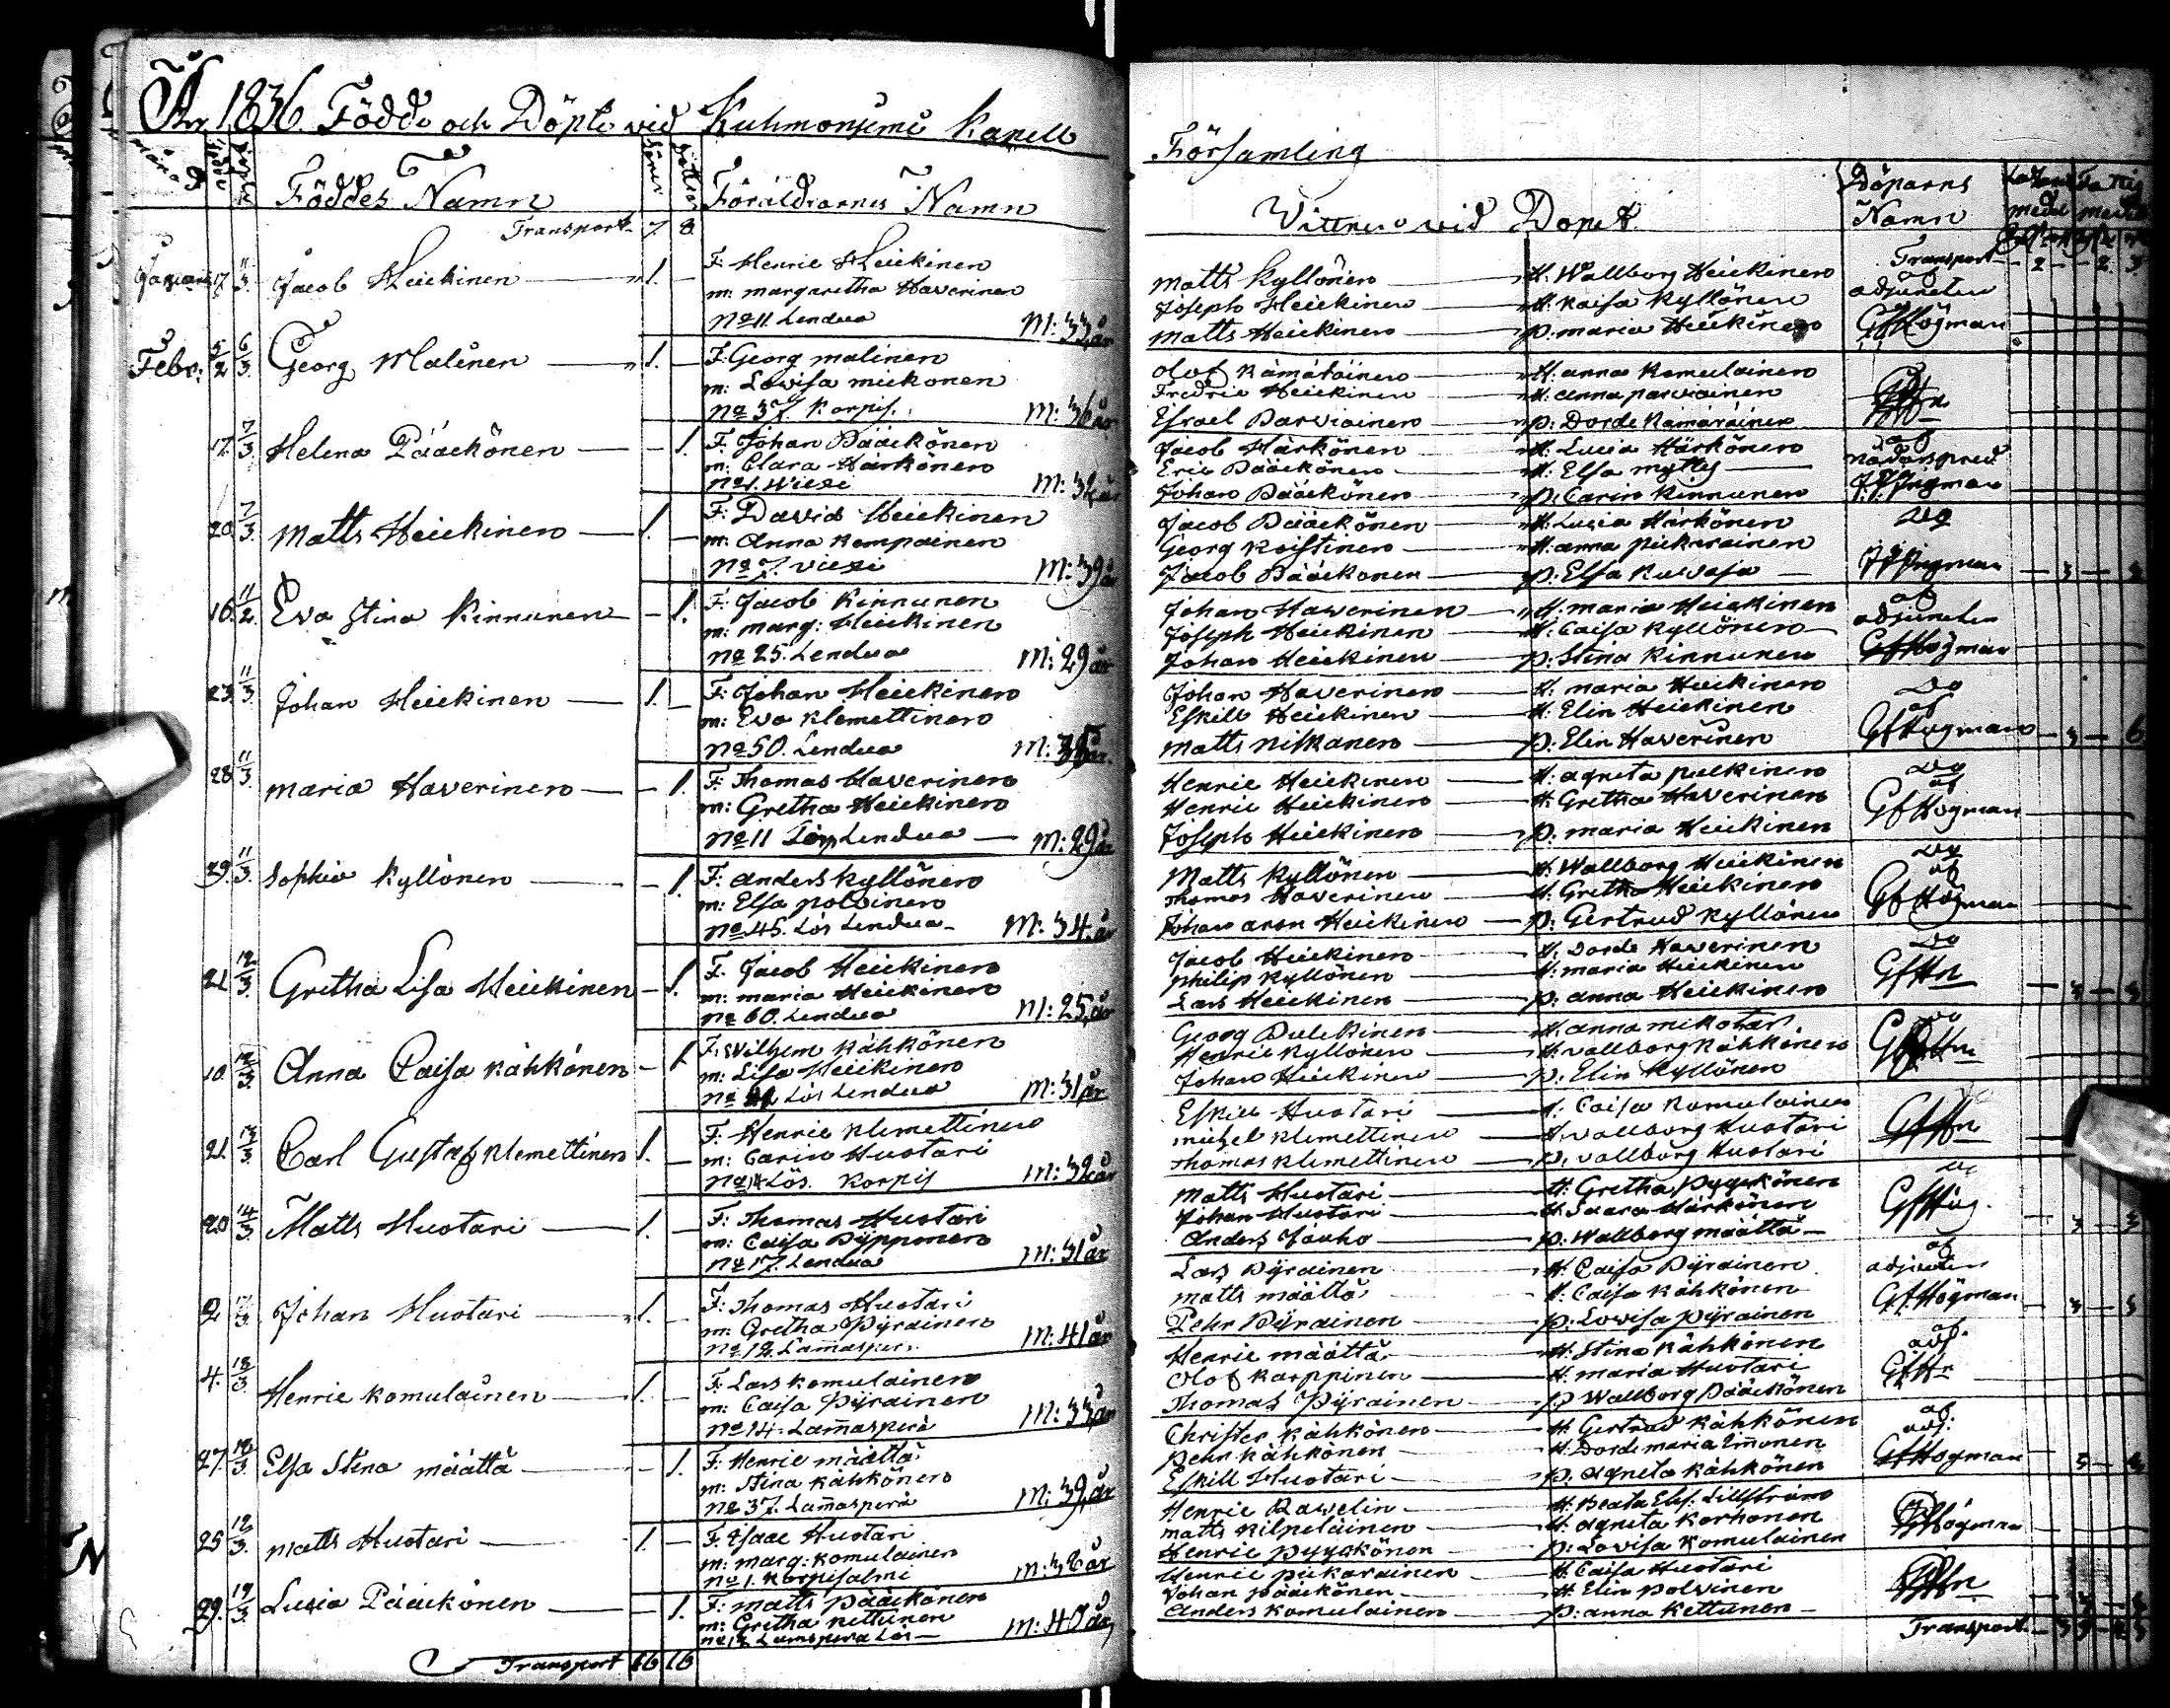 År 1836. Födde och Döpte vid Kuhmoniemi Kapell
Församling
Föddes Namn
Föräldrarnes Namn
Vittnen vid Dopet
Döparns Namn
Transport 7. 8.
Transport
Januari 17. 11/3. Jacob Heickinen 1.
F: Henric Heickinen
m: margaretha Haverinen
No 11. Lendua M: 33 år
Matts Kyllönen H: Wallborg Heickinen
Joseph Heickinen H: Kaisa Kyllönen
Matts Heickinen p: maria Heickinen
af adjuncten GfHögman
Febr: 5/2 6/3. Georg Malinen 1.
F: Georg malinen
m: Lovisa mickonen
No 37. Korpis. M: 36 år
Olof Kämäräinen H: anna Komulainen
Fredric Heickinen H: anna parviainen
Esrael Parviainen p: Dorde Kämäräinen
17. 7/3. Helena Pääckönen 1.
F: Johan Pääckönen
m: Clara Härkönen
No 1. Wiexi
Jacob Härkönen H: Lucia Härkönen
Eric Pääckönen H: Elsa myllys
Johan Pääckönen p: Carin Kinnunen
20. 7/3. Matts Heickinen 1.
F: David Heickinen
m: Anna Kempainen
No 7. Viexi M: 39 år
Jacob Pääckönen H: Lucia Härkönen
Georg Koistinen H: anna pickarainen
Jacob Pääckonen p: Elsa Kuvaja
16. 11/2. Eva Stina Kinnunen 1.
F: Jacob Kinnunen
m: marg: Heickinen
No 25. Lendua M: 29 år
Johan Haverinen H: maria Heickinen
Joseph Heickinen H: Caisa Kyllönen
Johan Heickinen p: Stina Kinnunen
af adjuncten GfHögman
23. 11/3. Johan Heickinen 1.
F: Johan Heickinen
m: Eva Klemettinen
No 50. Lendua
Johan Haverinen H: maria Heickinen
Eskill Heickinen H: Elin Heickinen
Matts Niskanen p: Elin Haverinen
Do af GfHögman
28. 11/3. Maria Haverinen 1.
F: Thomas Haverinen
m: Gretha Heickinen
No 11 Torp Lendua M: 29 år
Henric Heickinen H: agneta pulkinen
Henric Heickinen H: Gretha Haverinen
Joseph Heickinen p: maria Heickinen
Do af GfHögman
29. 11/3. Sophia Kyllönen 1.
F: anders Kyllönen
m: Elsa polvinen
No 45. Lös Lendua M: 34 år
Matts Kyllönen H: Wallborg Heickinen
Thomas Haverinen H: Gretha Heickinen
Johan aron Heickinen p: Gertrud Kyllönen
Do af GfHögman
21. 12/3. Gretha Lisa Heickinen 1.
F. Jacob Heickinen
m: maria Heickinen
No 60. Lendua M: 25 år
Jacob Heickinen H: Dorde Haverinen
Philip Kyllönen H: maria Heickinen
Lars Heickinen p: anna Heickinen
Do GfHn
10. 12/3. Anna Caisa Kähkönen 1.
F: Wilhem Kähkönen
m: Lisa Heickinen
Lös Lendua M: 31 år
Georg Pulckinen H: anna mikotar
Henric Kyllönen H: vallborg Kähkönen
Johan Heickinen p: Elin Kyllönen
21. 13/3. Carl Gustaf Klemettinen 1.
F: Henric Klemettinen
m: Carin Huotari
No 14 Lös. Korpis M: 32 år
Eskill Huotari H: Caisa Komulainen
michel Klemettinen H: vallborg Huotari
Thomas Klemettinen p: vallborg Huotari
GfHn
20. 14/3. Matts Huotari 1.
F: Thomas Huotari
m: Caisa Pypponen
No 17. Lendua M: 31 år
Matts Huotari H: Gretha Pyyckönen
Johan Huotari H: Saara Härkönen
Anders Jauho p: Wallborg määttä
GfHög.
2. 17/3. Johan Huotari 1.
F: Thomas Huotari
m: Gretha Pyrainen
No 12. Lam̄asper. M: 41 år
Lars Pyrainen H: Caisa Pyrainen
Matts määttä H: Caisa Kähkönen
Pehr Pyrainen p: Lovisa pyrainen
af adjuncten GfHögman
4. 18/3. Henric Komulainen 1.
F: Lars Komulainen
m: Caisa Pyrainen
No 14. Lam̄asperä M: 33 år
Henric määttä H: Stina Kähkönen
Olof Karppinen H: maria Huotari
Thomas Pyrainen p: Wallborg Pääckönen
adj. GfHn
27. 18/3. Elsa Stina määttä 1.
F: Henric määttä
m: Stina Kähkönen
No 37. Lam̄asperä M: 39 år
Christer Kähkönen H: Gertrud Kähkönen
Pehr Kähkönen H: Dorde maria Im̄onen
Eskill Huotari p: agneta Kähkönen
af adj: GfHögman
25. 19/3. Matts Huotari 1.
F: Isaac Huotari
m: marg: Komulainen
No 1. Korpisalmi
Henric Ravelin H: Beata Elis: Lillström
Matts Kilpeläinen H: agneta Korhonen
Henric Pyyckönen p: Lovisa Komulainen
29. 19/3. Lucia Pääckönen 1.
F: Matts Pääckönen
m: Gretha Kettunen
Lamspera Lös M: 40 år
Henric Pickarainen H: Caisa Huotari
Johan Pääckönen H: Elin Polvinen
Anders Komulainen p: anna Kettunen
Transport 16 16
Transport